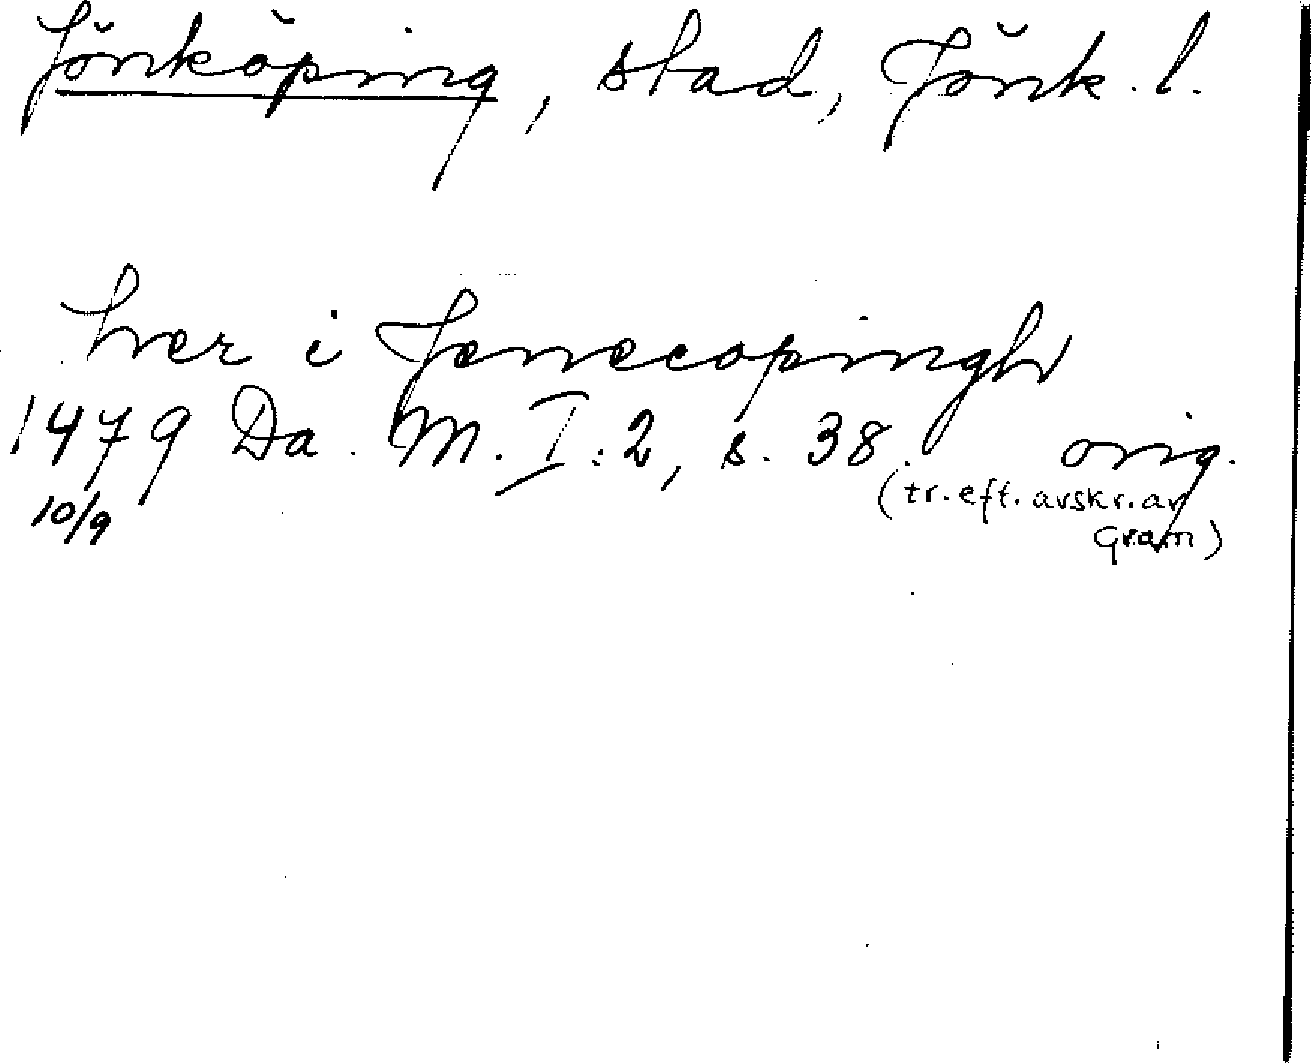 Jönköping, stad, Jönk. l.
hær i Jenecopingh
1479 Da. M. I:2, s. 38. orig.
10/9 (tr. eft. avskr. av
Gram)